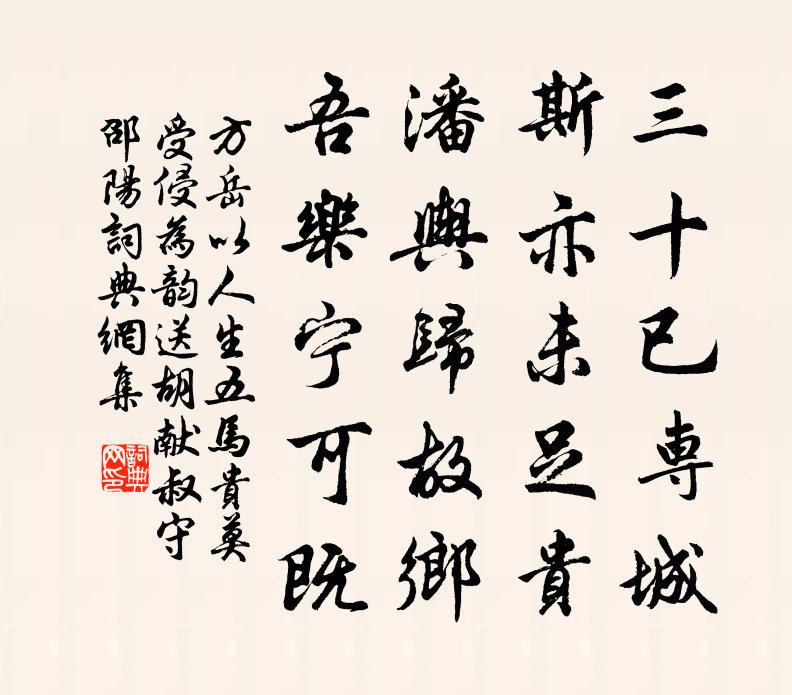 三十已専城
斯亦未足貴
潘輿歸故鄉
吾樂宁可既
方岳以人生五馬貴莫
受侵為韵送胡献叔守
邵陽詞典網集
詞典网印